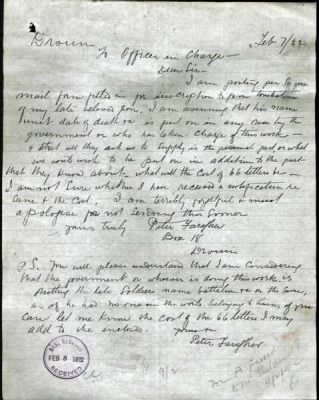 Drouin Feb 7/22
To Officer in Charge
Dear Sir -
I am posting per to you
mail form filled in for inscription to
of my late beloved son, I am assuming that his name
unit date of death &c is put on in any case by the
government or who has taken charge of this work -
& that all they ask us to supply is the personal part or what
we would wish to be put on in addition to the part
that they know about. what will the cost of 66 letters be -
I am not sure whether I have received a notification re
same & the cost. I am terribly forgetful & must
apologise for not sending this sooner
yours truly Peter Fargher
Box 18
Drouin
P.S. You will please understand that I am considering
that the government or whoever is doing this work is
putting the late soldiers name battalion &c on the same,
as he had no one in the world belonging to him. if you
can let me know the cost of the 66 letters I may
add to the enclosed.
Peter Fargher
FEB 8 1922
RECEIVED
9/2